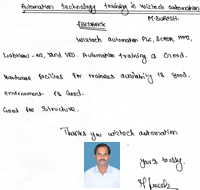 Automation technology training in wiztech automation
M. SURESH.
FEEDBACK
Wiztech automation PLC, SCADA, HMI,
Labview - NI, and VFD. Automation training is Good.
Hardware facilities for trainees availability is good.
environment is Good.
Good for structure.
Thanks you wiztech automation
Yours truly,